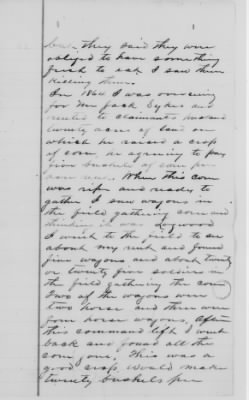 back, they said they were
obliged to have something
fresh to eat I saw them
killing them.
In 1864 I was overseeing
for Mr Jack Sykes and
rented to claimants
twenty acres of land on
which he raised a crop
of corn he agreeing to pay
five bushels of corn per
acre rent. When this corn
was ripe and ready to
gather I saw wagons in
the field gathering corn and
thinking it
I went to the field to see
about my rent and found
five wagons and about twenty
or twenty five soldiers in
the field gathering the corn
Two of the wagons were
two horse and three were
four horse wagons. After
this command left I went
back and found all the
corn gone. This was a
good crop, would make
twenty bushels per